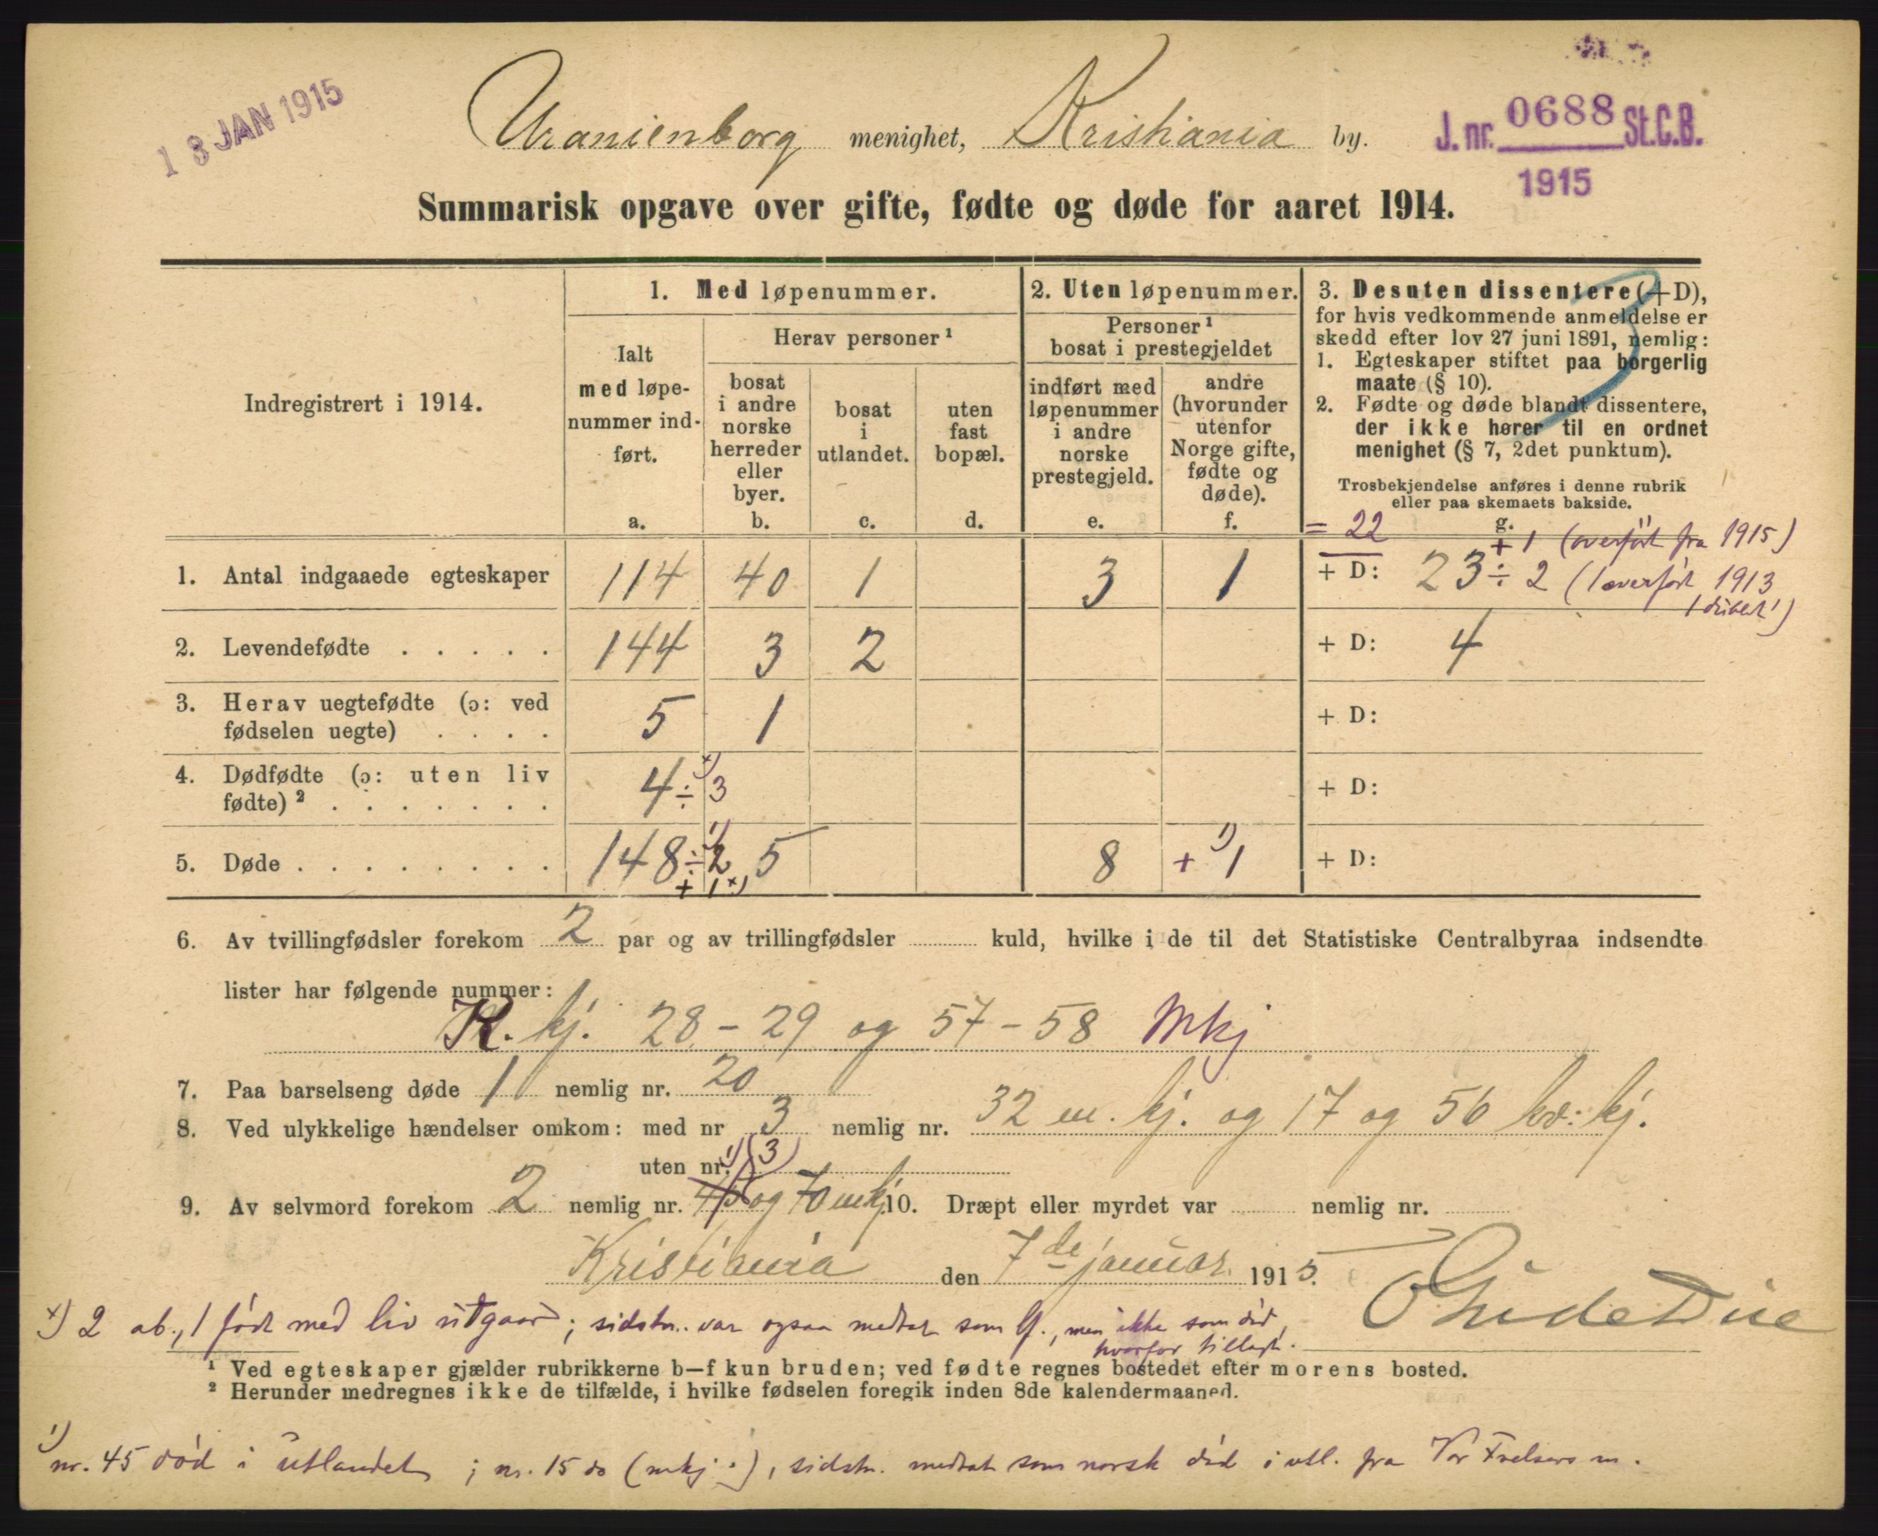 18 JAN 1915
Uranienborg menighet, Kristiania by.
J. nr. 0688 St.C.B.
1915
Summarisk opgave over gifte, fødte og døde for aaret 1914.
Indregistrert i 1914.
1. Med løpenummer.
Ialt med løpenummer indført.
a.
Herav personer ¹
bosat i andre norske herreder eller byer.
b.
bosat i utlandet.
c.
uten fast bopæl.
d.
2. Uten løpenummer.
Personer ¹ bosat i prestegjeldet
indført med løpenummer i andre norske prestegjeld.
e.
andre (hvorunder utenfor Norge gifte, fødte og døde).
f.
3. Desuten dissentere (+D),
for hvis vedkommende anmeldelse er
skedd efter lov 27 juni 1891, nemlig:
1. Egteskaper stiftet paa borgerlig
maate (§ 10).
2. Fødte og døde blandt dissentere,
der ikke hører til en ordnet
menighet (§ 7, 2det punktum).
Trosbekjendelse anføres i denne rubrik
eller paa skemaets bakside.
g.
= 22
+ 1 (overført fra 1915)
1. Antal indgaaede egteskaper 114 40 1 3 1 + D: 23 ÷ 2 (1 overført 1913
1 dubet)
2. Levendefødte . . . . . 144 3 2 + D: 4
3. Herav uegtefødte (ɔ: ved
fødselen uegte) . . . . 5 1 + D:
4. Dødfødte (ɔ: uten liv
fødte) ² . . . . . . . 4 ÷ 3 x) + D:
5. Døde . . . . . . . . 148 ÷ 2 1) + 1 x) 5 8 + 1 1) + D:
6. Av tvillingfødsler forekom 2 par og av trillingfødsler kuld, hvilke i de til det Statistiske Centralbyraa indsendte
lister har følgende nummer:
K. kj. 28 - 29 og 57 - 58 Mkj
7. Paa barselseng døde 1 nemlig nr. 20
8. Ved ulykkelige hændelser omkom: med nr 3 nemlig nr. 32 m. kj. og 17 og 56 kv. kj.
uten nr. 1) (3)
9. Av selvmord forekom 2 nemlig nr. 45 og 70 mkj 10. Dræpt eller myrdet var nemlig nr.
Kristiania den 7de januar 1915.
x) 2 ab., 1 født med liv utgaar; sidstn. var ogsaa medtat som lf., men ikke som død,
hvorfor tillagt.
¹ Ved egteskaper gjælder rubrikkerne b–f kun bruden; ved fødte regnes bostedet efter morens bosted.
² Herunder medregnes ikke de tilfælde, i hvilke fødselen foregik inden 8de kalendermaaned.
1) nr. 45 død i utlandet; nr. 15 do (mkj.), sidstn. medtat som norsk død i utl. fra Vor Frelsers m.